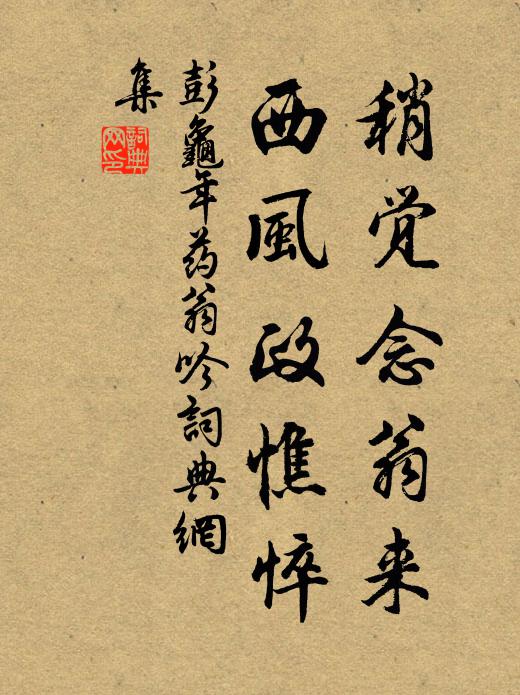 稍觉念翁来
西風政憔悴
彭龜年药翁吟詞典網
集
詞典网印